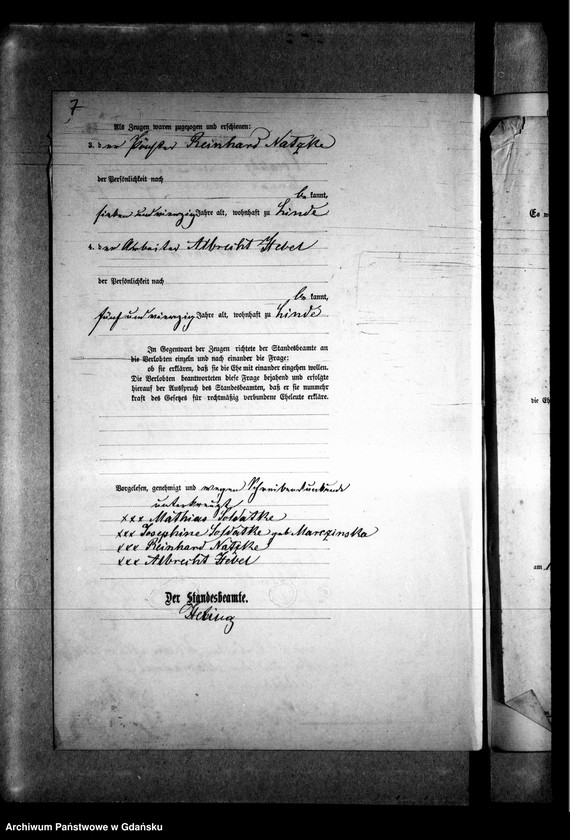 7
Als Zeugen waren zugezogen und erschienen:
3. der Reinhard Natzke
der Persönlichkeit nach
be kannt,
sieben und vierzig Jahre alt, wohnhaft zu Linde
4. der Arbeiter Albrecht Hebel
der Persönlichkeit nach
be kannt,
fünf und vierzig Jahre alt, wohnhaft zu Linde
In Gegenwart der Zeugen richtete der Standesbeamte an
die Verlobten einzeln und nach einander die Frage:
ob sie erklären, daß sie die Ehe mit einander eingehen wollen.
Die Verlobten beantworteten diese Frage bejahend und erfolgte
hierauf der Ausspruch des Standesbeamten, daß er sie nunmehr
kraft des Gesetzes für rechtmäßig verbundene Eheleute erkläre.
Vorgelesen, genehmigt und wegen Schreibensunkunde
unterkreuzt
xxx Mathias Soldatke
xxx Josephine Soldatke geb Marczinska
xxx Reinhard Natzke
xxx Albrecht Hebel
Der Standesbeamte.
Es w
die Eh
am
Archiwum Państwowe w Gdańsku